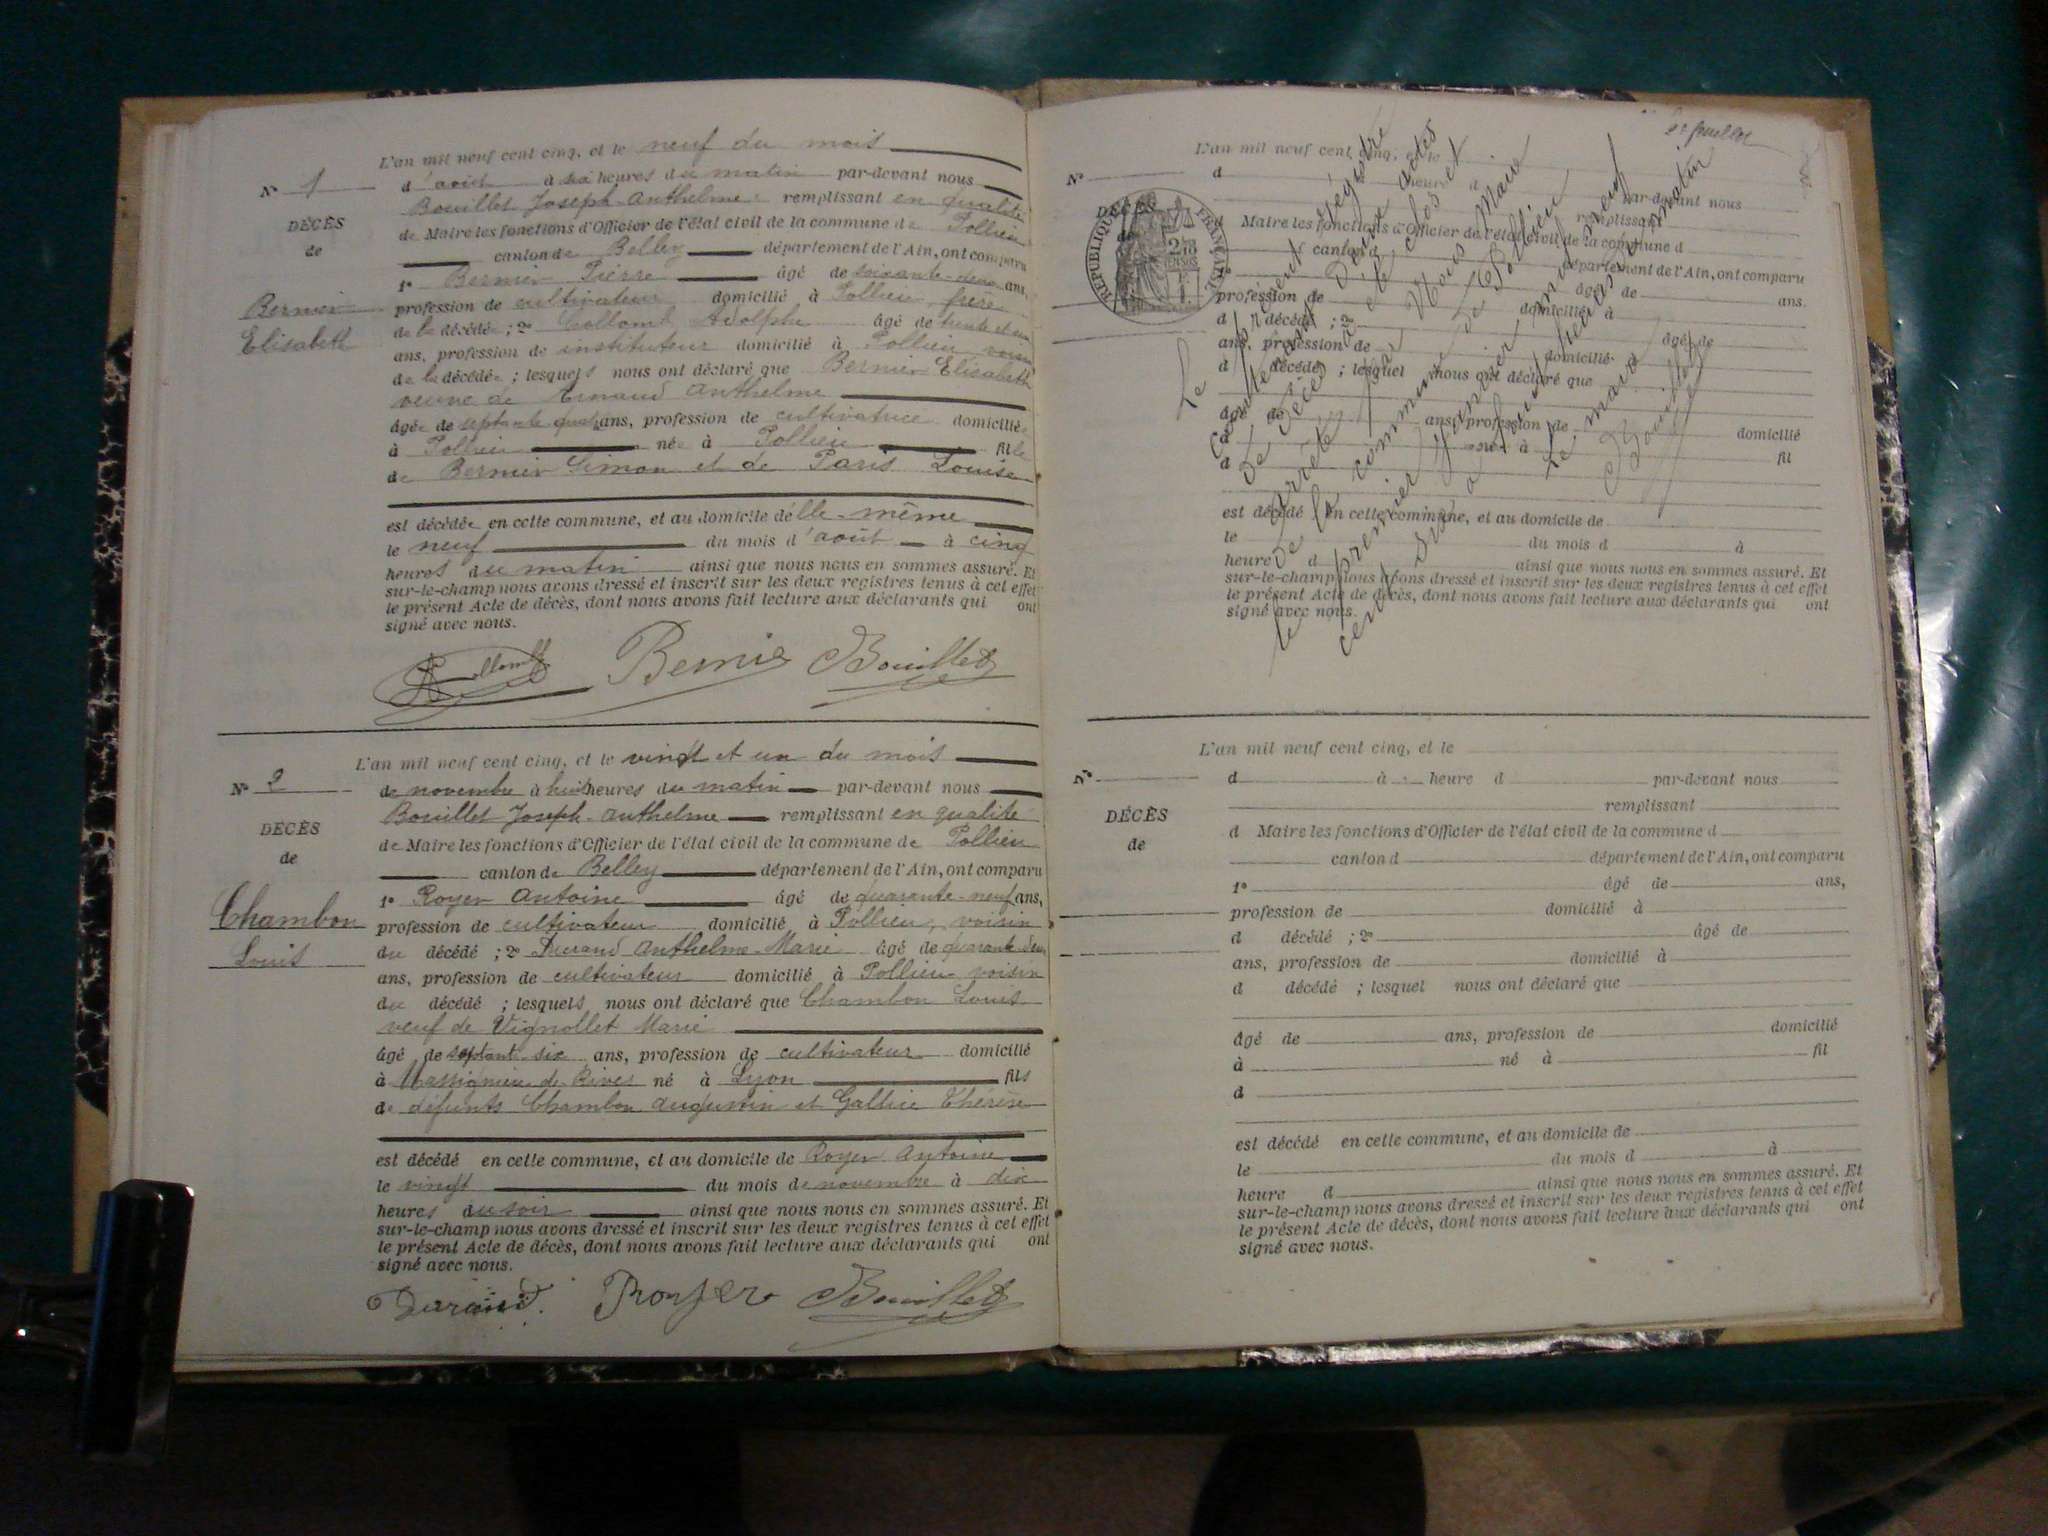 L'an mil neuf cent cinq, et le neuf du mois
N° 1
d'août à heures du matin par-devant nous
Bouillet Joseph-Anthelme remplissant en qualité
DÉCÈS
de Maire les fonctions d'Officier de l'état civil de la commune de Pollieu
de
canton de Belley département de l'Ain, ont comparu
1° Bernier Pierre âgé de soixante-deux ans,
Bernier
profession de cultivateur domicilié à Pollieu, frère
Elisabeth
de la décédée ; 2° Collomb Adolphe âgé de trente et un
ans, profession de instituteur domicilié à Pollieu voisin
de la décédée ; lesquels nous ont déclaré que Bernier Elisabeth
veuve de Ernaud Anthelme
âgée de septante quatre ans, profession de cultivatrice domiciliée
à Pollieu née à Pollieu fille
de Bernier Simon et de Paris Louise
est décédée en cette commune, et au domicile d'elle-même
le neuf du mois d'août à cinq
heures du matin ainsi que nous nous en sommes assuré. Et
sur-le-champ nous avons dressé et inscrit sur les deux registres tenus à cet effet
le présent Acte de décès, dont nous avons fait lecture aux déclarants qui ont
signé avec nous.
Collomb Bernier Bouillet
L'an mil neuf cent cinq, et le vingt et un du mois
N° 2
de novembre à huit heures du matin par-devant nous
Bouillet Joseph-Anthelme remplissant en qualité
DÉCÈS
de Maire les fonctions d'Officier de l'état civil de la commune de Pollieu
de
canton de Belley département de l'Ain, ont comparu
1° Royer Antoine âgé de quarante-neuf ans,
Chambon
profession de cultivateur domicilié à Pollieu, voisin
Louis
du décédé ; 2° Durand Anthelme-Marie âgé de quarante deux
ans, profession de cultivateur domicilié à Pollieu voisin
du décédé ; lesquels nous ont déclaré que Chambon Louis
veuf de Vignollet Marie
âgé de septante six ans, profession de cultivateur domicilié
à Massignieu de Rives né à Lyon fils
de défunts Chambon Augustin et Gallice Thérèse
est décédé en cette commune, et au domicile de Royer Antoine
le vingt du mois de novembre à dix
heures du soir ainsi que nous nous en sommes assuré. Et
sur-le-champ nous avons dressé et inscrit sur les deux registres tenus à cet effet
le présent Acte de décès, dont nous avons fait lecture aux déclarants qui ont
signé avec nous.
Durand Royer Bouillet
2e feuillet
L'an mil neuf cent cinq, et le
N°
d heure d par-devant nous
remplissant
DÉCÈS
d Maire les fonctions d'Officier de l'état civil de la commune d
de
canton d département de l'Ain, ont comparu
1° âgé de ans,
profession de domicilié à
d décédé ; 2° âgé de
ans, profession de domicilié
d décédé ; lesquel nous ont déclaré que
âgé de ans, profession de domicilié
à né à fil
d
est décédé en cette commune, et au domicile de
le du mois d à
heure d ainsi que nous nous en sommes assuré. Et
sur-le-champ nous avons dressé et inscrit sur les deux registres tenus à cet effet
le présent Acte de décès, dont nous avons fait lecture aux déclarants qui ont
signé avec nous.
RÉPUBLIQUE FRANÇAISE
Le présent régistre
contenant deux actes
de décès a été clos et
arrêté par Nous Maire
de la commune de Pollieu
le premier janvier mil neuf
cent six à huit heures du matin
Le maire
Bouillet
L'an mil neuf cent cinq, et le
N°
d à heure d par-devant nous
remplissant
DÉCÈS
d Maire les fonctions d'Officier de l'état civil de la commune d
de
canton d département de l'Ain, ont comparu
1° âgé de ans,
profession de domicilié à
d décédé ; 2° âgé de
ans, profession de domicilié à
d décédé ; lesquel nous ont déclaré que
âgé de ans, profession de domicilié
à né à fil
d
est décédé en cette commune, et au domicile de
le du mois d à
heure d ainsi que nous nous en sommes assuré. Et
sur-le-champ nous avons dressé et inscrit sur les deux registres tenus à cet effet
le présent Acte de décès, dont nous avons fait lecture aux déclarants qui ont
signé avec nous.